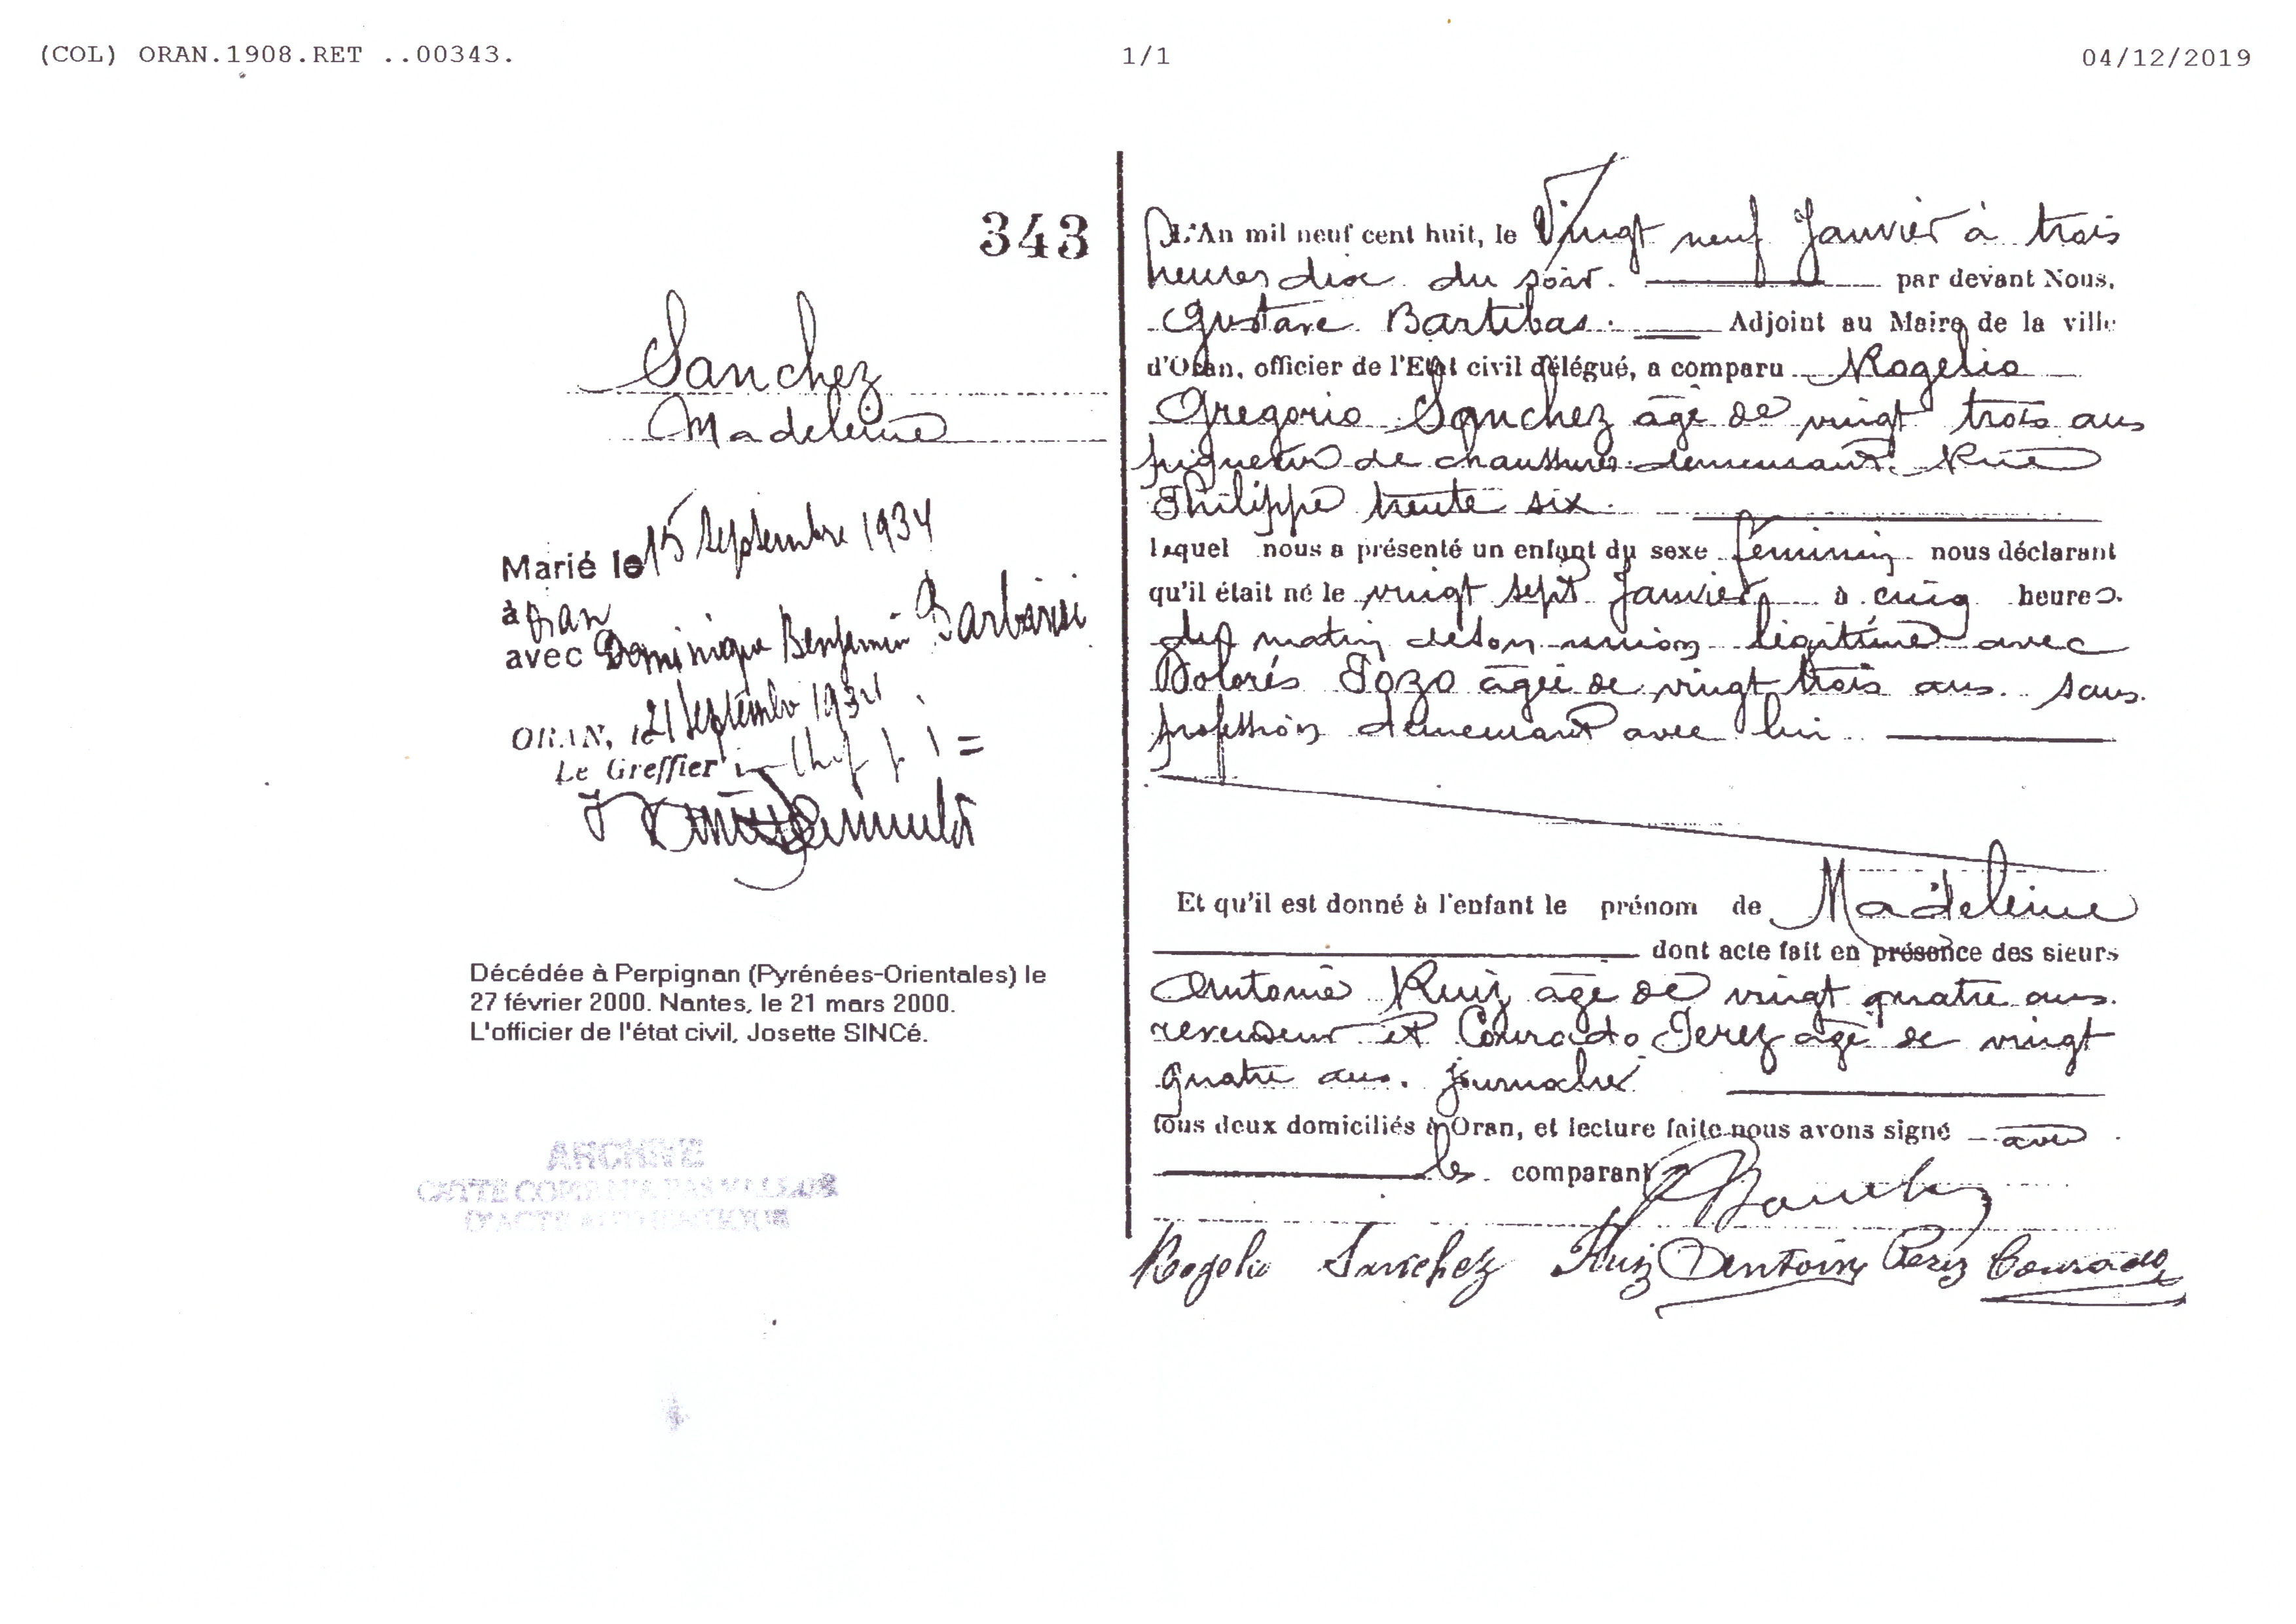 (COL) ORAN.1908.RET ..00343.
1/1
04/12/2019
343
Sanchez
Madeleine
Marié le 15 Septembre 1934
à Oran
avec Dominique Benjamin
ORAN, le 21 Septembre 1934
Le Greffier
Décédée à Perpignan (Pyrénées-Orientales) le
27 février 2000. Nantes, le 21 mars 2000.
L'officier de l'état civil, Josette SINCé.
ARCHIVE
L'An mil neuf cent huit, le Vingt neuf Janvier à trois
heures dix du soir. par devant Nous,
Gustave Bartibas. Adjoint au Maire de la ville
d'Oran, officier de l'Etat civil délégué, a comparu Rogelio
Gregorio Sanchez âgé de vingt trois ans
piqueur de chaussures demeurant Rue
Philippe trente six.
lequel nous a présenté un enfant du sexe féminin nous déclarant
qu'il était né le vingt sept Janvier à cinq heures
du matin de son union légitime avec
Dolorés Pozo âgée de vingt trois ans. sans
profession demeurant avec lui
Et qu'il est donné à l'enfant le prénom de Madeleine
dont acte fait en présence des sieurs
Antoine Ruiz âgé de vingt quatre ans.
revendeur et Conrado Perez âgé de vingt
quatre ans. journalier
tous deux domiciliés à Oran, et lecture faite nous avons signé avec
les comparants
Rogelio Sanchez Ruiz Antoine Perez Conrado